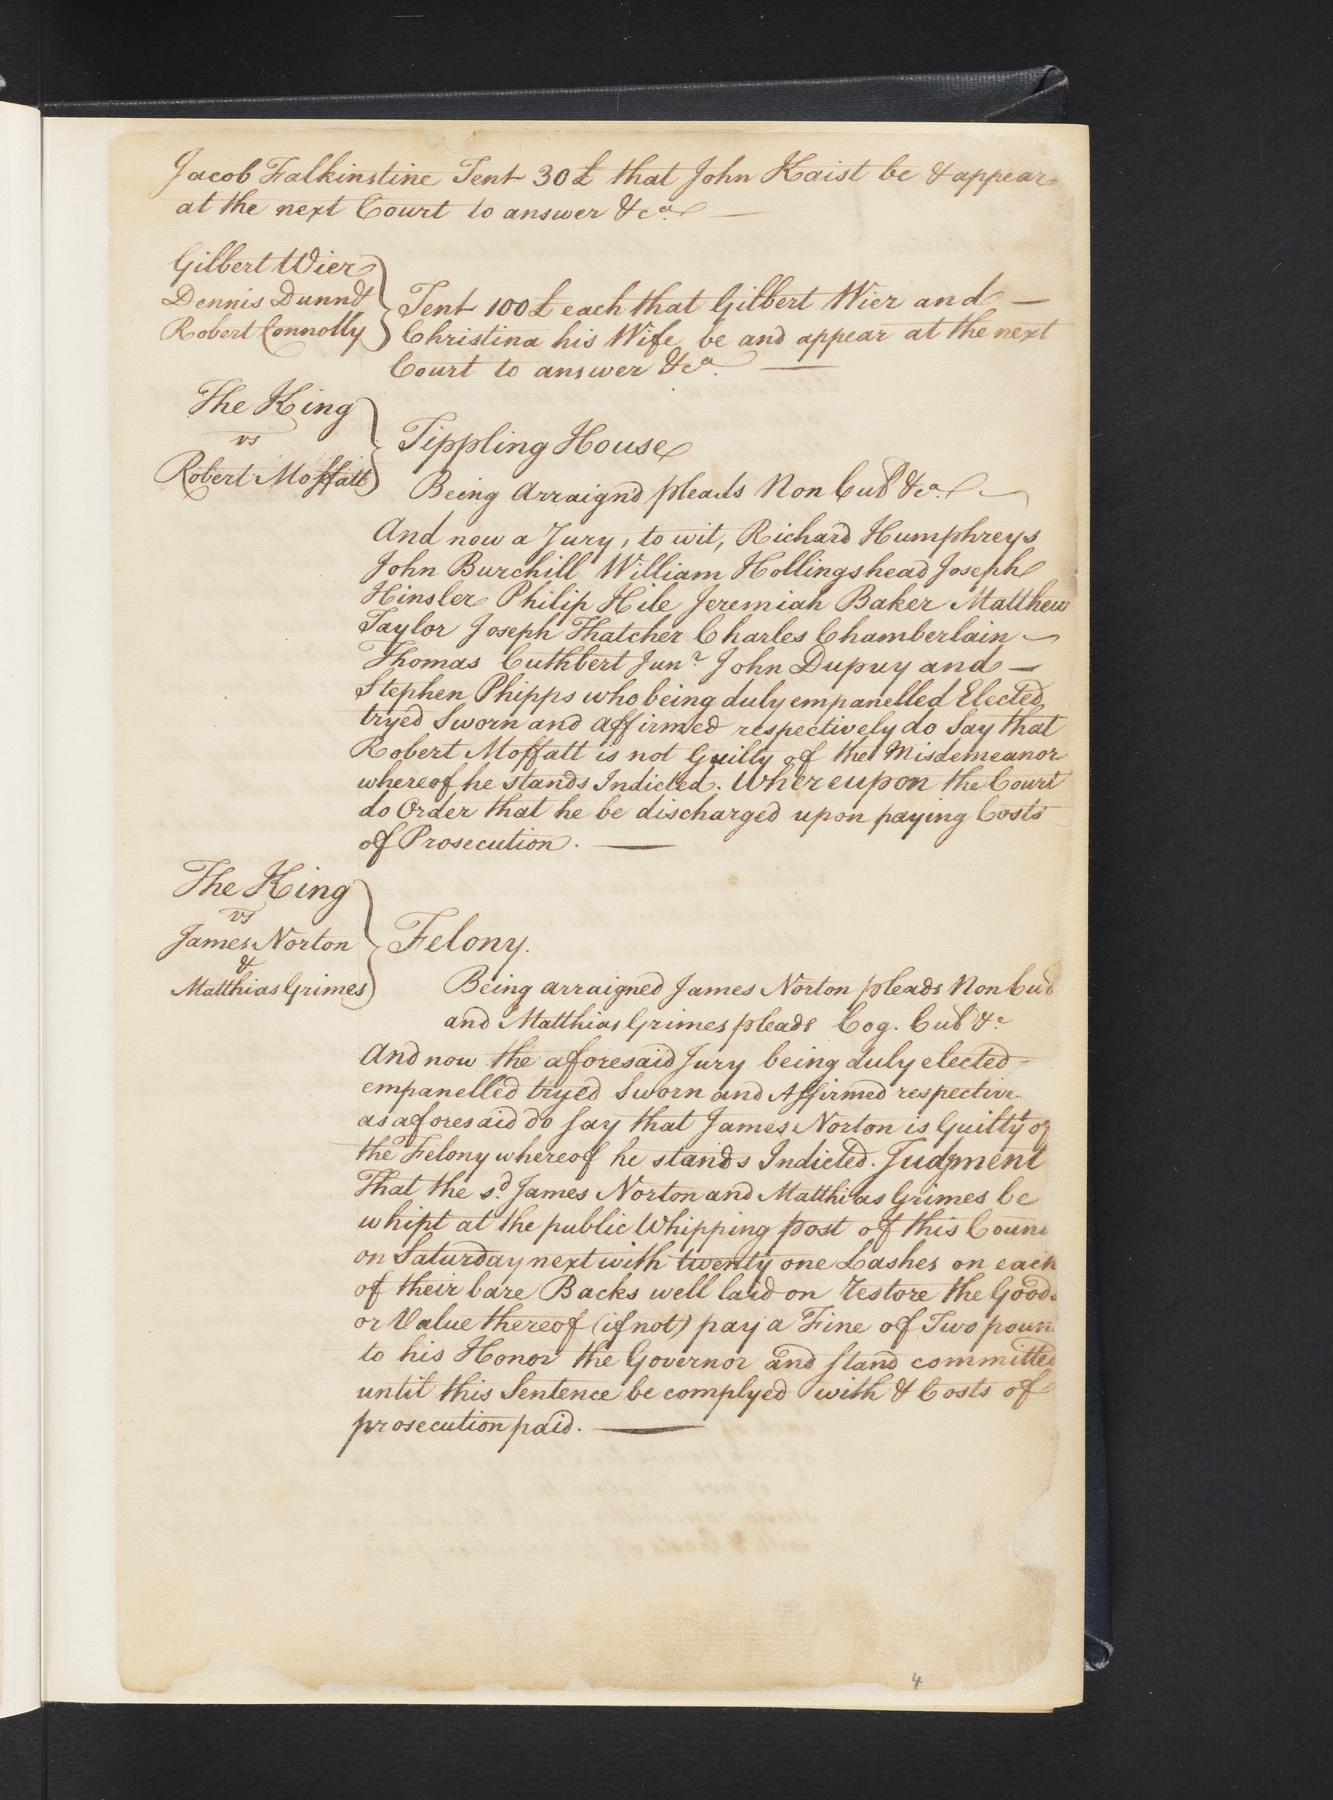 Jacob Falkinstine Tent 30£ that John Kaist be & appear
at the next Court to answer &ca.
Gilbert Wier
Dennis Dunn &
Robert Connolly
Tent 100£ each that Gilbert Wier and
Christina his Wife be and appear at the next
Court to answer &ca.
The King
vs
Robert Moffatt
Tippling House
Being Arraign'd pleads Non Cul &ca.
And now a Jury, to wit, Richard Humphreys
John Burchill William Hollingshead Joseph
Hinsler Philip Hile Jeremiah Baker Matthew
Taylor Joseph Thatcher Charles Chamberlain
Thomas Cuthbert Junr John Dupuy and
Stephen Phipps who being duly empanelled Elected
tryed Sworn and affirmed respectively do Say that
Robert Moffatt is not Guilty of the Misdemeanor
whereof he stands Indicted. Whereupon the Court
do Order that he be discharged upon paying Costs
of Prosecution.
The King
vs
James Norton
&
Matthias Grimes
Felony.
Being arraigned James Norton pleads Non Cul
and Matthias Grimes pleads Cog. Cul &c
And now the aforesaid Jury being duly elected
empanelled tryed Sworn and Affirmed respective
as aforesaid do say that James Norton is Guilty of
the Felony whereof he stands Indicted. Judgment
That the sd. James Norton and Matthias Grimes be
whipt at the public Whipping post of this Coun
on Saturday next with twenty one Lashes on each
of their bare Backs well laid on restore the Goods
or Value thereof (if not) pay a Fine of Two poun
to his Honor the Governor and stand committed
until this Sentence be complyed with & Costs of
prosecution paid.
4